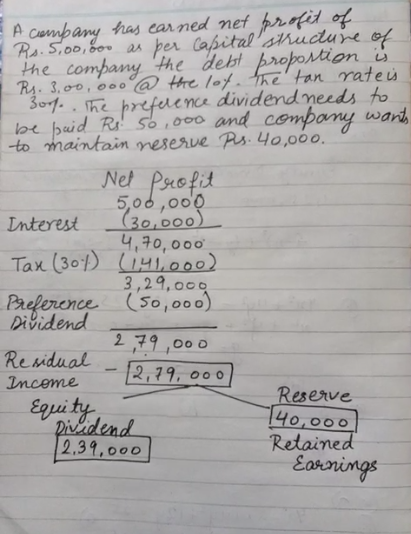 A company has earned net profit of
Rs. 5,00,000 as per capital structure of
the company the debt propostion is
Rs. 3,00,000 @ the 10%. The tan rate is
30%. The preference dividend needs to
be paid Rs. 50,000 and company wants
to maintain reserve Rs. 40,000.
Net Profit
5,00,000
Interest (30,000)
4,70,000
Tax (30%) (1,41,000)
3,29,000
Preference (50,000)
Dividend
2,79,000
Residual Income - 2,79,000
Equity Dividend
2,39,000
Reserve
40,000
Retained
Earnings